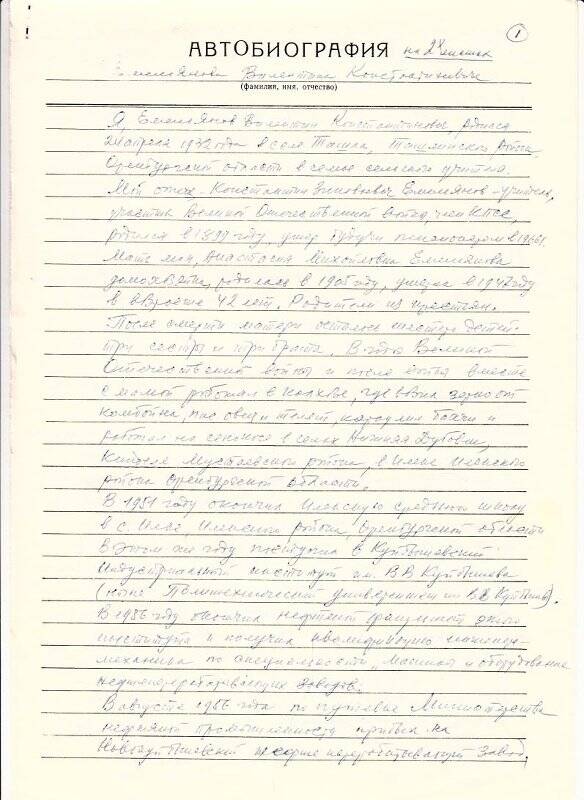 1
АВТОБИОГРАФИЯ на 2х листах
Емельянова Валентина Константиновича
(фамилия, имя, отчество)
Я, Емельянов Валентин Константинович родился
апреля 1932 года в селе Ташла, Ташлинского района,
Оренбургской области в семье сельского учителя.
Мой отец - Константин Зиновьевич Емельянов - учитель,
участник Великой Отечественной войны, член КПСС,
родился в 1899 году, умер будучи пенсионером в 1966г.
Мать моя, Анастасия Михайловна Емельянова
домохозяйка, родилась в 1905 году, умерла в 1947 году
в возрасте 42 лет. Родители из крестьян.
После смерти матери осталось шестеро детей
три сестры и три брата. В годы Великой
Отечественной войны и после войны вместе
с мамой работал в колхозе, где возил зерно от
комбайна, пас овец и телят, и
работал на сенокосе в селах Нижняя
Мустаевского района, в Илеке Илекского
района Оренбургской области.
В 1951 году окончил Илекскую среднюю школу
в с. Илек, Илекского района, Оренбургской области
В этом же году поступил в Куйбышевский
Индустриальный институт им. В.В. Куйбышева
(ныне Политехнический университет им В.В. Куйбышева).
В 1956 году окончил нефтяной факультет этого
института и получил квалификацию инженера-
механика по специальности, Машины и оборудование
нефтеперерабатывающих заводов.
В августе 1956 года по путевке Министерства
нефтяной промышленности прибыл на
Новокуйбышевский нефтеперерабатывающий завод,